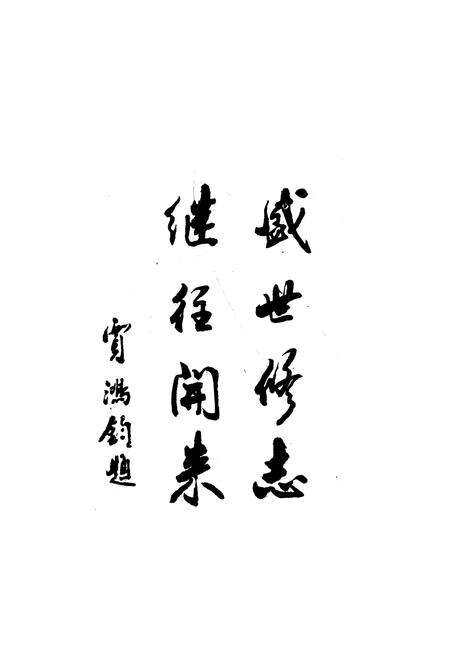 盛世修志
继往開来
贾鸿鈞题